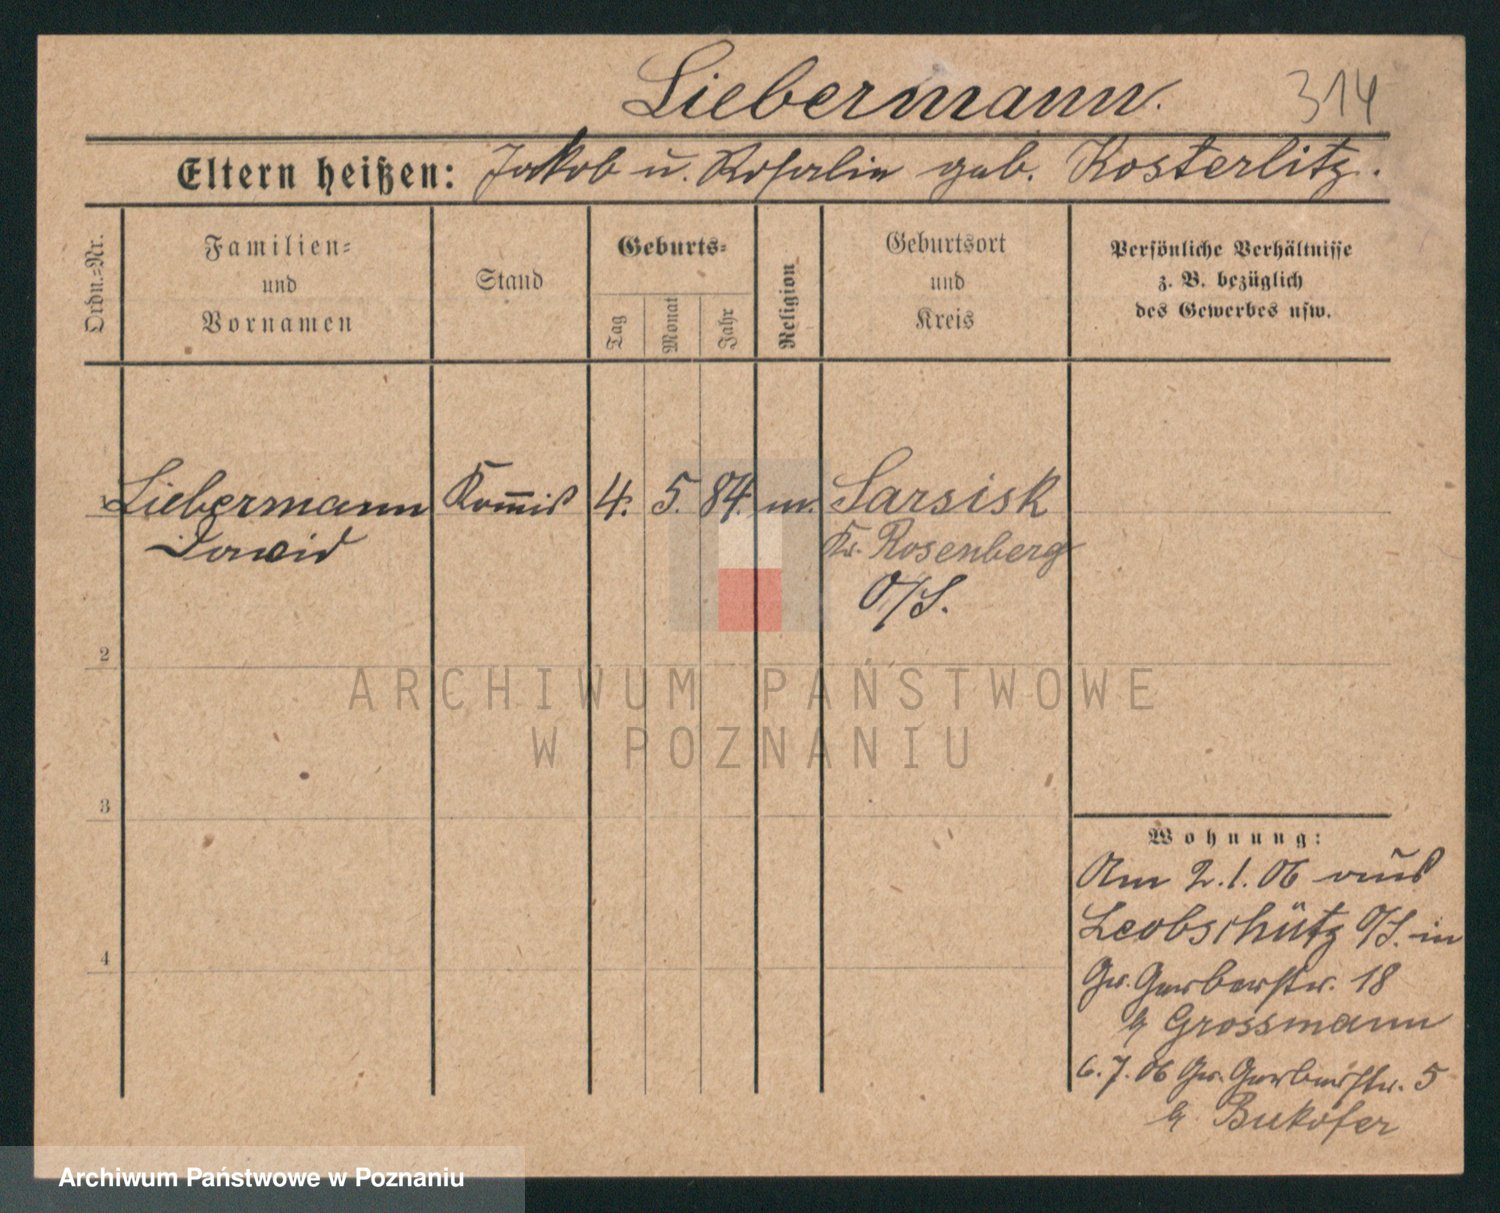 Liebermann. 314
Eltern heißen: Jakob u. Rosalie geb. Kosterlitz.
Ordn.=Nr.
Familien=
und
Vornamen
Stand
Geburts=
Tag
Monat
Jahr
Religion
Geburtsort
und
Kreis
Persönliche Verhältnisse
z. B. bezüglich
des Gewerbes usw.
1 Liebermann Kom̅is 4. 5. 84. m. Sarsisk
Dawid Kr. Rosenberg
O/S.
2
3
4
Wohnung:
Am 2.1.06 aus
Leobschütz O/S. in
Gr. Gerberstr. 18
b/ Grossmann
6.7.06 Gr. Gerberstr. 5
b/ Bukofer
ARCHIWUM PAŃSTWOWE
W POZNANIU
Archiwum Państwowe w Poznaniu